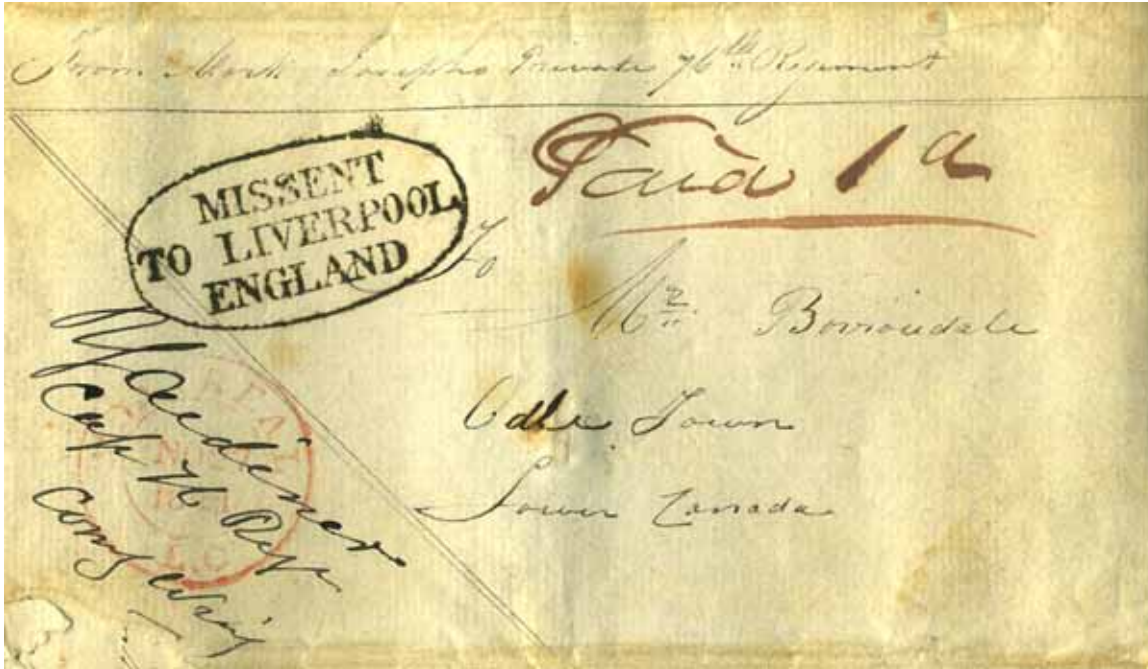 From Mark Josephs Private 76th Regiment
Paid 1d
MISSENT
TO LIVERPOOL
ENGLAND
To
Mr Borrowdale
Odle Town
Lower Canada
Gardiner
Capt 76 Regt
Comg